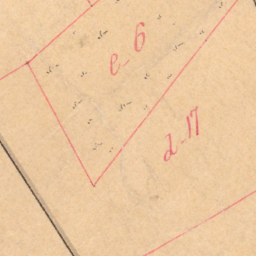 e-6
d-17